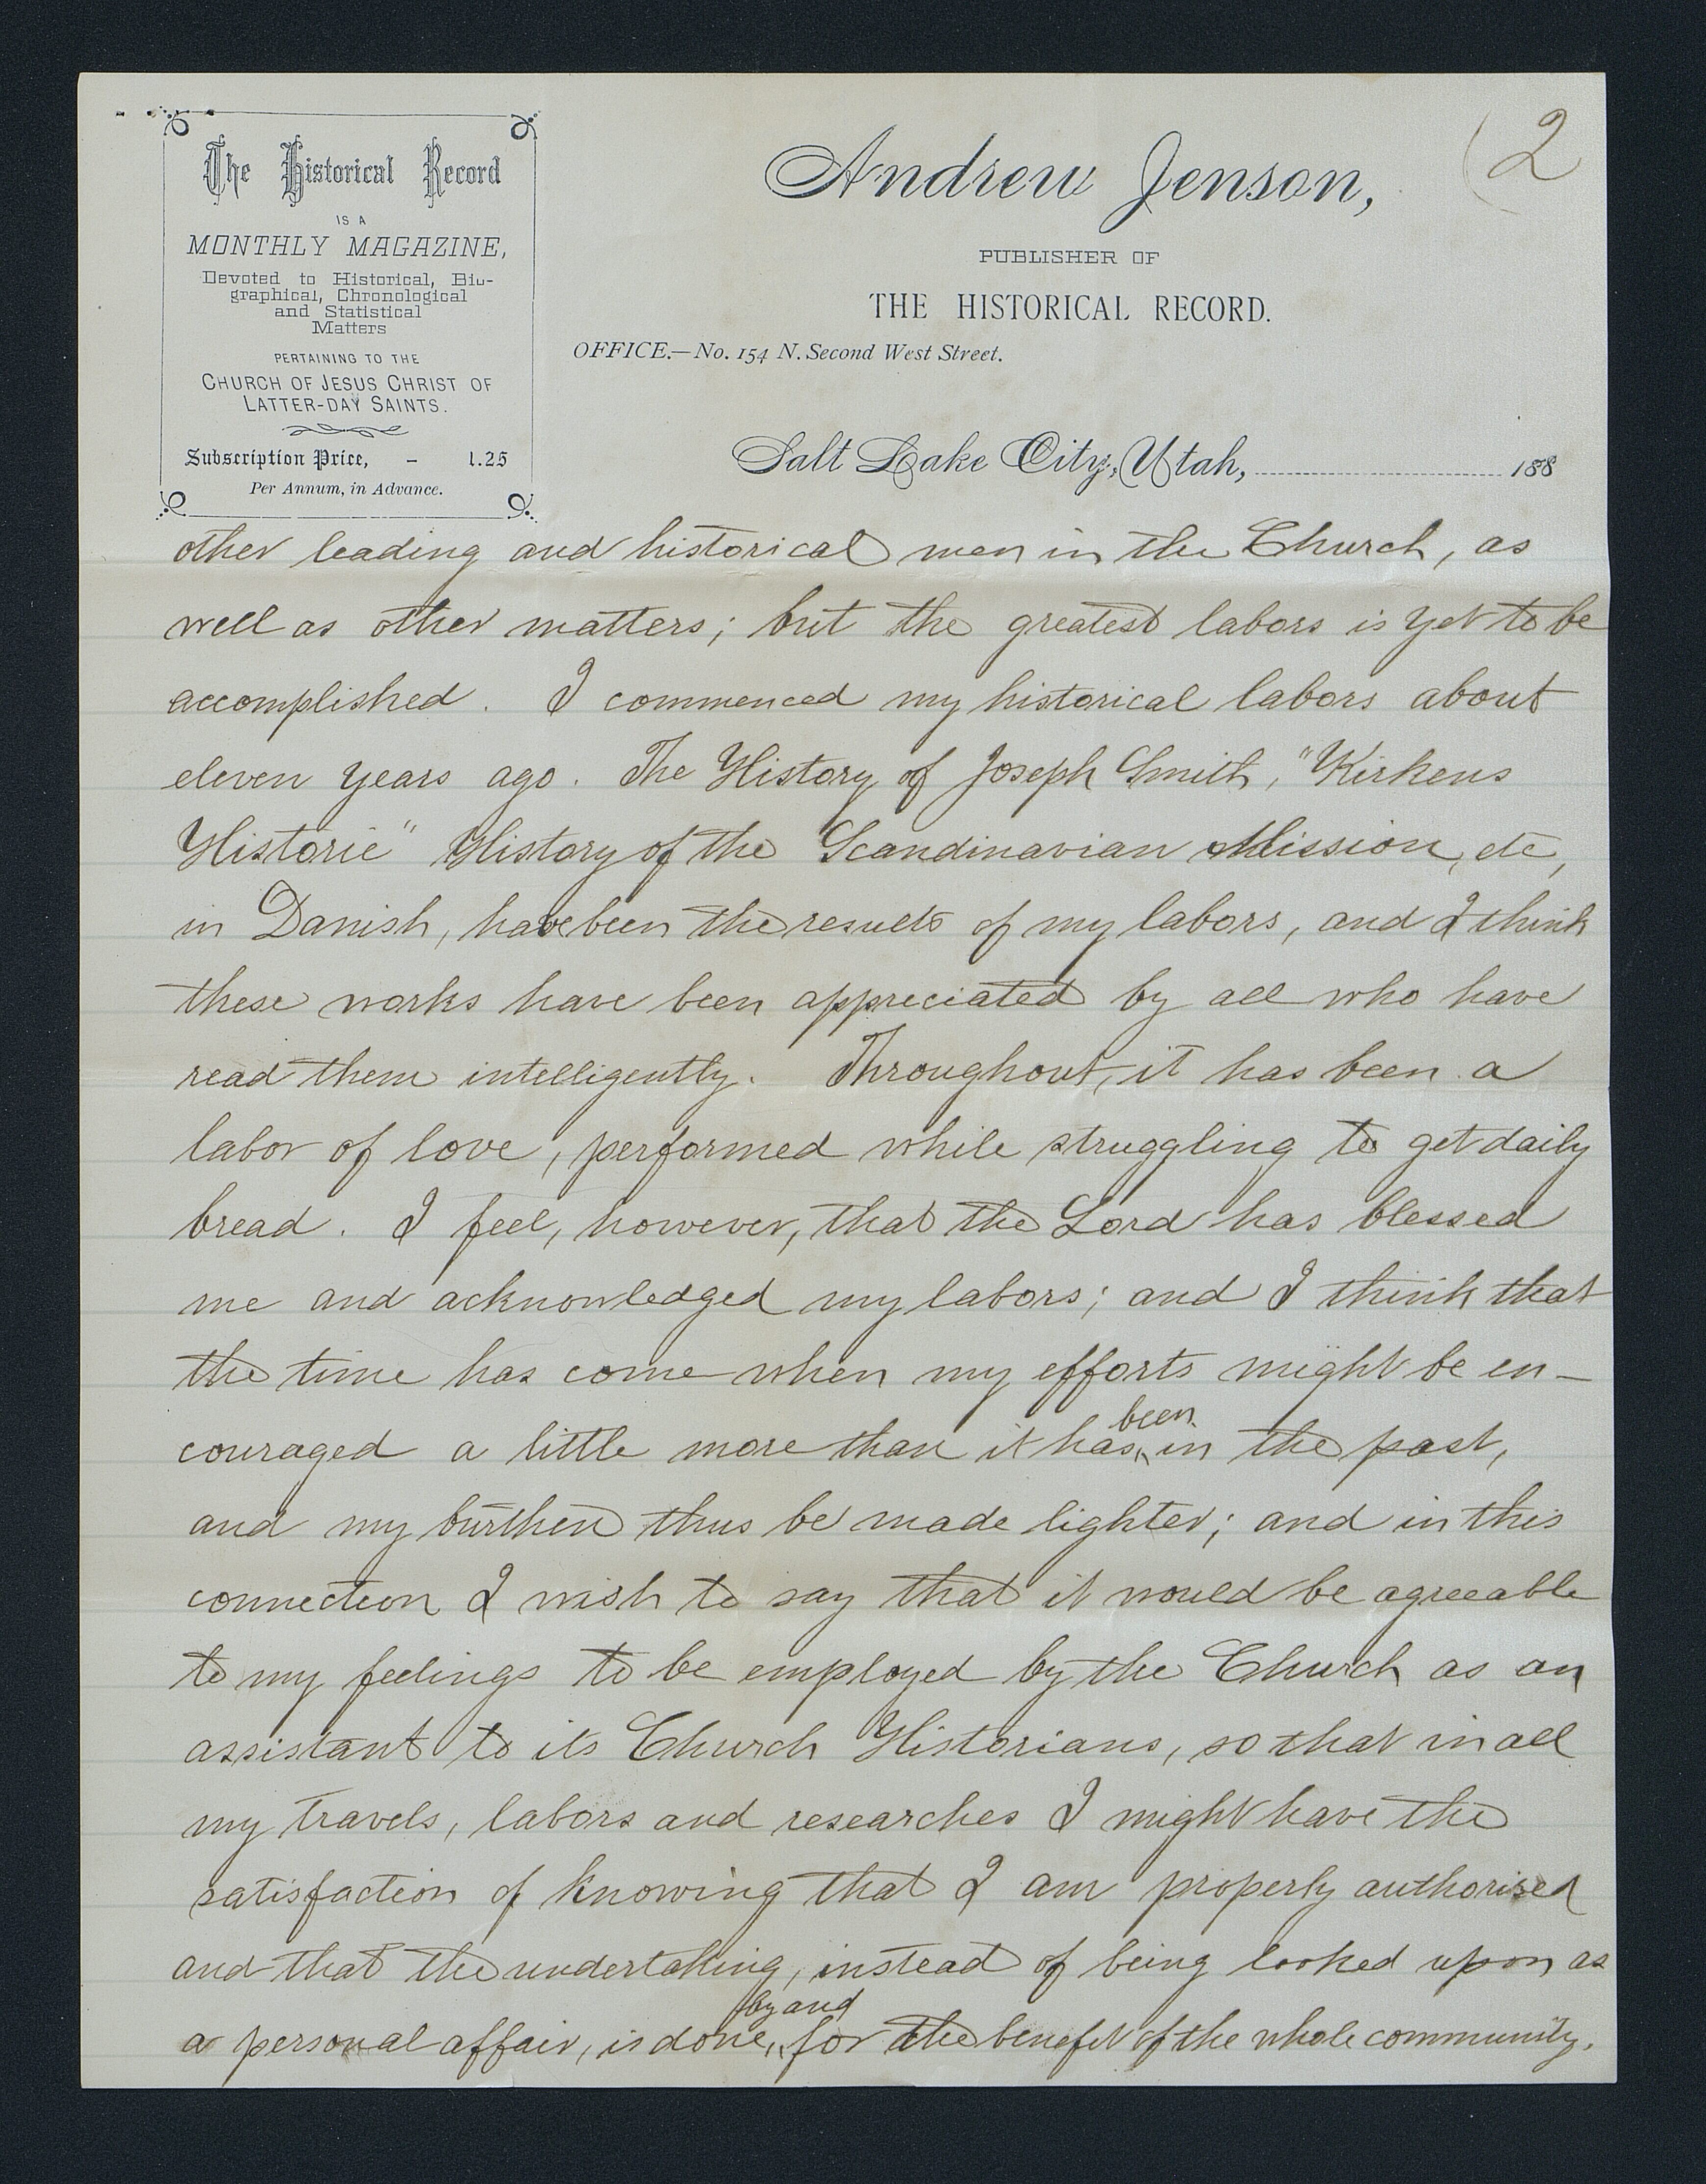 The Historical Record
IS A
MONTHLY MAGAZINE,
Devoted to Historical, Bio-
graphical, Chronological
and Statistical
Matters
PERTAINING TO THE
CHURCH OF JESUS CHRIST OF
LATTER-DAY SAINTS.
Subscription Price, - 1.25
Per Annum, in Advance.
2
Andrew Jenson,
PUBLISHER OF
THE HISTORICAL RECORD.
OFFICE.—No. 154 N. Second West Street.
Salt Lake City, Utah, 188
other leading and historical men in the Church, as
well as other matters; but the greatest labors is yet to be
accomplished. I commenced my historical labors about
eleven years ago. The History of Joseph Smith, "Kirkens
Historie" History of the Scandinavian Mission, etc,
in Danish, have been the results of my labors, and I think
these works have been appreciated by all who have
read them intelligently. Throughout, it has been a
labor of love, performed while struggling to get daily
bread. I feel, however, that the Lord has blessed
me and acknowledged my labors; and I think that
the time has come when my efforts might be en-
couraged a little more than it has been in the past,
and my burthen thus be made lighter; and in this
connection I wish to say that it would be agreeable
to my feelings to be employed by the Church as an
assistant to its Church Historians, so that in all
my travels, labors and researches I might have the
satisfaction of knowing that I am properly authorised
and that the undertaking, instead of being looked upon as
a personal affair, is done, by and for the benefit of the whole community.